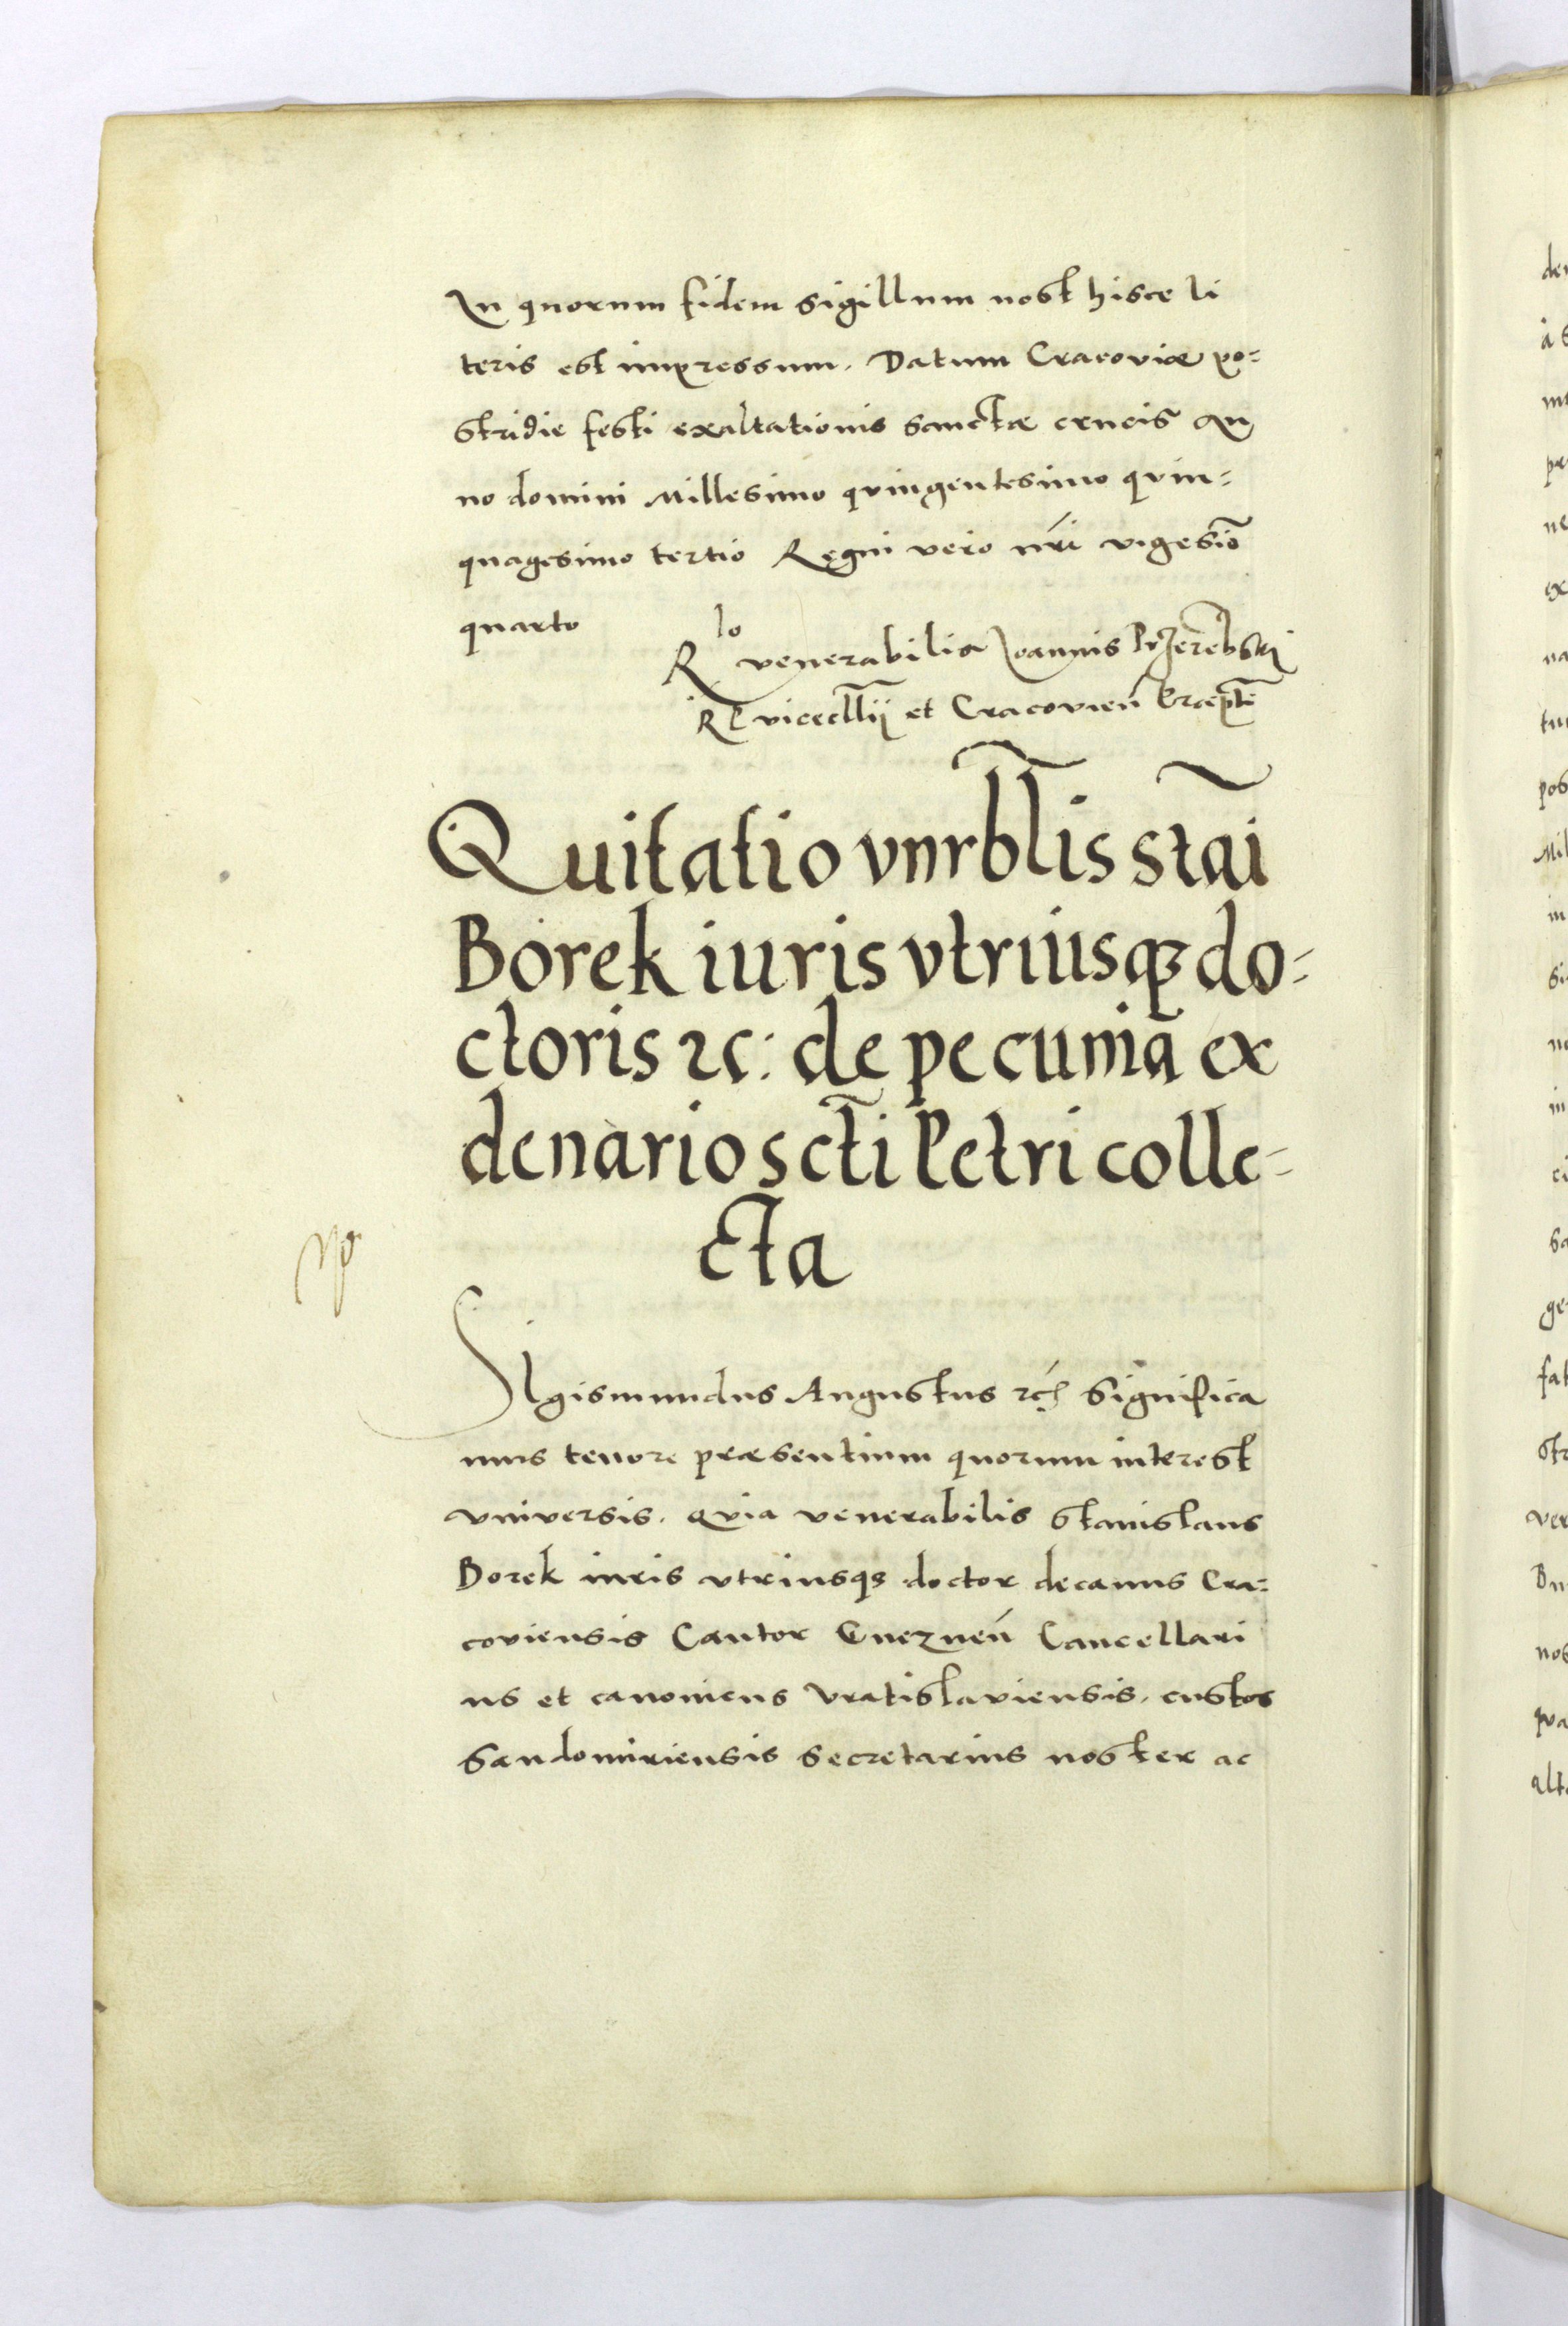 In quorum fidem sigillum nost hisce li
teris est impressum. Datum Cracoviæ po=
stridie festi exaltationis sanctæ crucis An
no domini Millesimo quingentesimo quin=
quagesimo tertio Regni vero nr̃i vigesiõ
quarto
Rlo venerabilis Joannis Przerebski
R C vicecllÿ et Cracovień
Quitatio vnrblis stai
Borek iuris vtriusq3 do=
ctoris 2c: de pecunia ex
denario scti Petri colle=
cta
SIgismundus Augustus 2c̃ significa
mus tenore præsentium quorum interest
vniversis. Qvia venerabilis Stanislaus
Borek iuris vtriusq3 doctor decanus Cra=
coviensis Cantor Gneznen̄ Cancellari
us et canonicus Vratislaviensis. custos
Sandomiriensis Secretarius noster ac